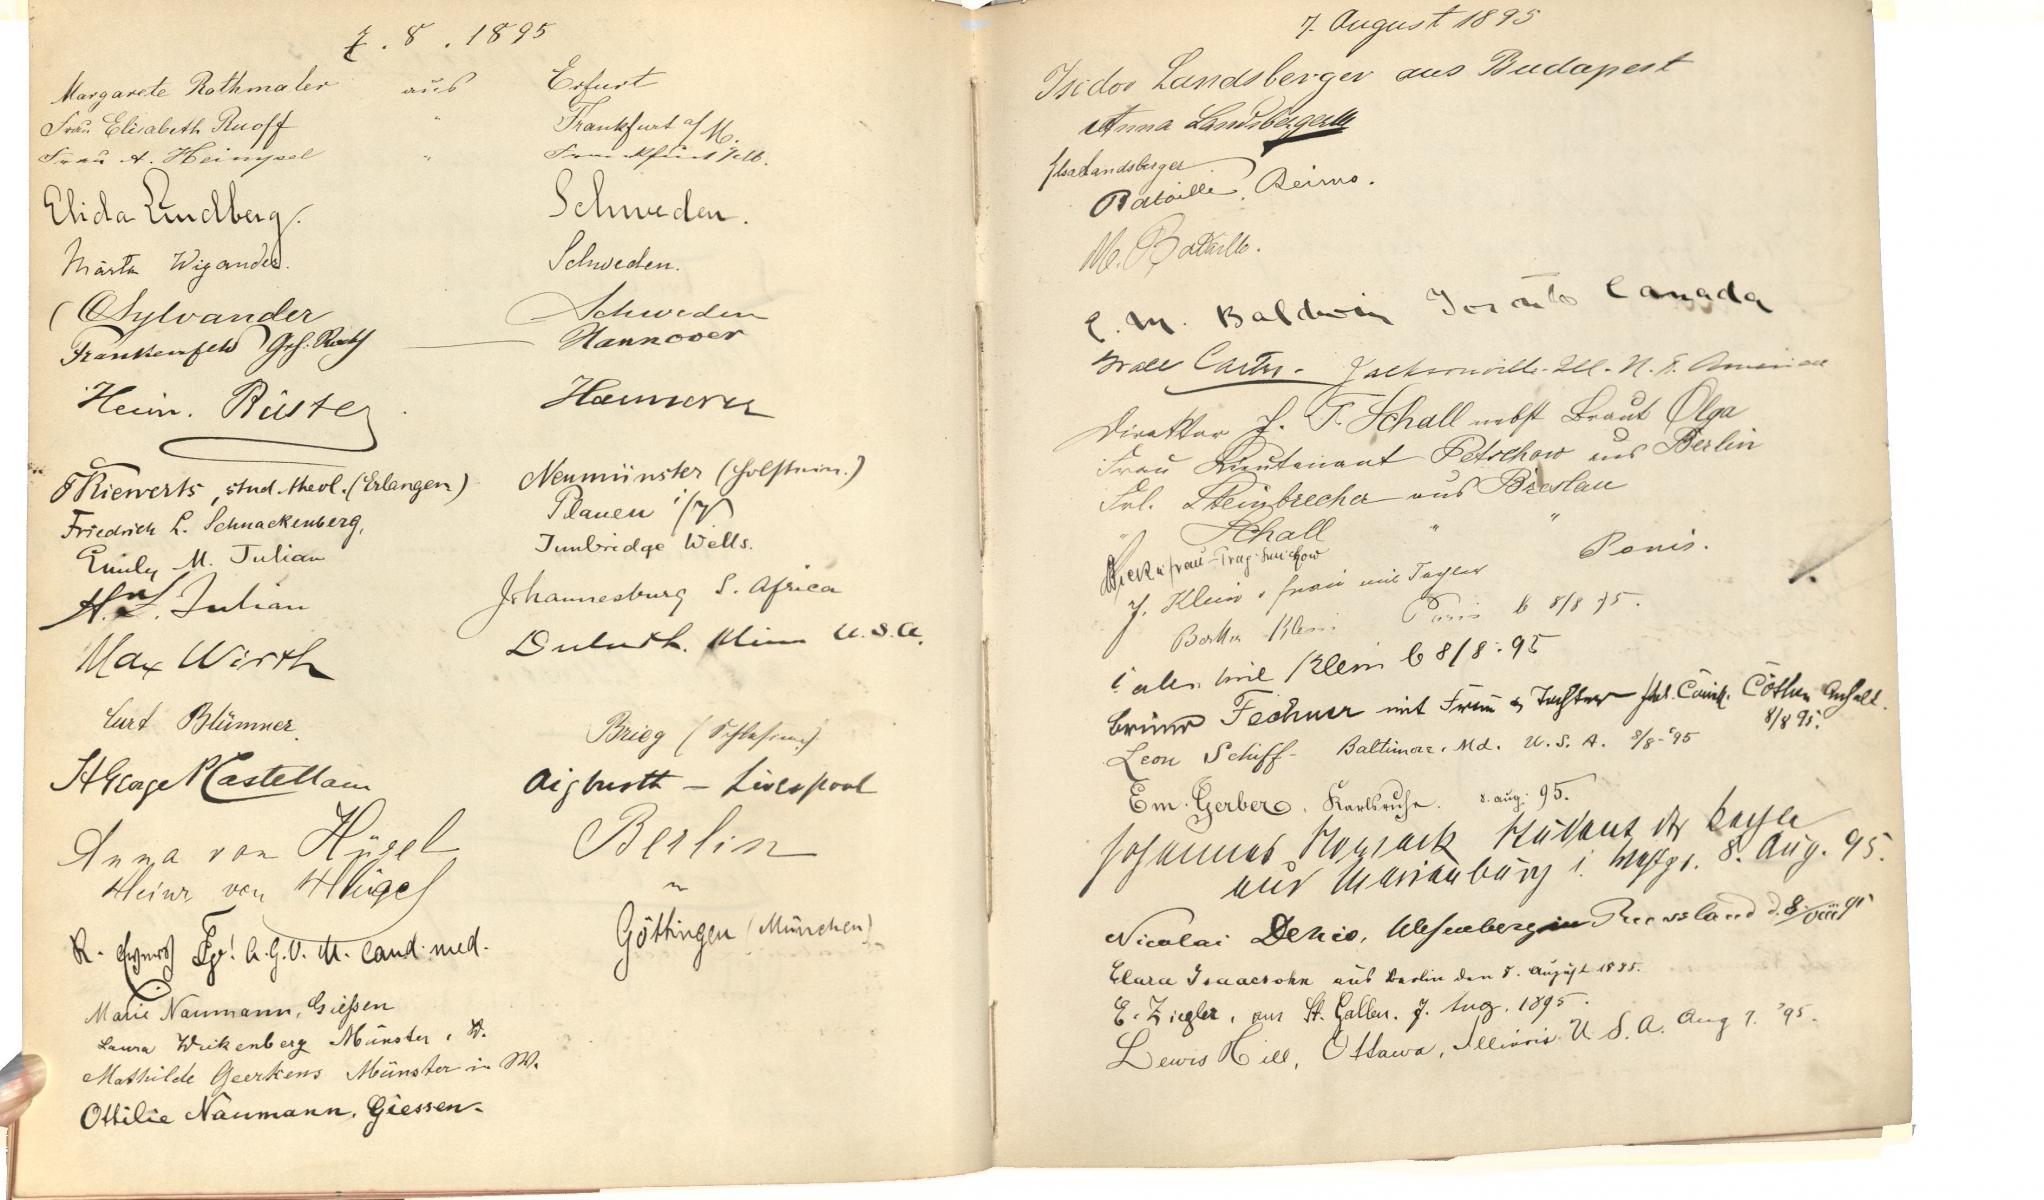 7. 8. 1895
Margarete Rothmaler aus Erfurt
Frau Elisabeth Ruoff " Frankfurt a/M.
Frau A. " Frankfurt
Elida Lindberg. Schweden.
Märta Wigander. Schweden.
Sylvander Schweden
Frankenfeld Hannover
Heinr. Rüster Hannover
Kiewerts, stud. theol. (Erlangen) Neumünster (Holstein.)
Friedrich L. Schnackenberg, Plauen i/V
Emily M. Julian Tunbridge Wells.
H. L. Julian Johannesburg S. Africa
Max Wirth Duluth. Minn U.S.A.
Curt Blümner. Brieg (Schlesien)
St George Castellain Aigburth – Liverpool
Anna von Hügel Berlin
Heinr von Hügel "
R. A.G.V. M. cand. med. Göttingen (München)
Marie Naumann, Gießen
Laura Wickenberg Münster i. W.
Mathilde Geerkens Münster in W.
Ottilie Naumann, Giessen.
7. August 1895
Isidor Landsberger aus Budapest
Anna Landsberger
Elsa Landsberger
Bataille, Reims.
M. Bataille.
E. M. Baldwin Toronto Canada
Jacksonville. Ill. N. America
Direktor J. T. Schall nebst Braut Olga
Frau Lieutenant Petschow aus Berlin
Frl. Steinbrecher aus Breslau
" Schall " "
Frau – Prag-Smichow
J. Klein, Frau mit Tochter Paris.
Klein Paris 8/8 95.
Klein 8/8. 95
Bruno Fechner mit Frau & Tochter Cöthen Anhalt.
8/8 95.
Leon Schiff – Baltimore, Md. U. S. A. 8/8-'95
Em. Gerber, Karlsruhe. 8. aug. 95.
Johannes Student der
aus Marienburg i. Westpr. 8. Aug. 95.
Nicolai Dehio, Wesenberg in Russland d. 8/VIII 95
Clara Isaacsohn aus Berlin den 8. August 1895.
E. Ziegler, aus St. Gallen. 7. Aug. 1895.
Lewis Hill, Ottawa, Illinois U. S. A. Aug 7. '95.